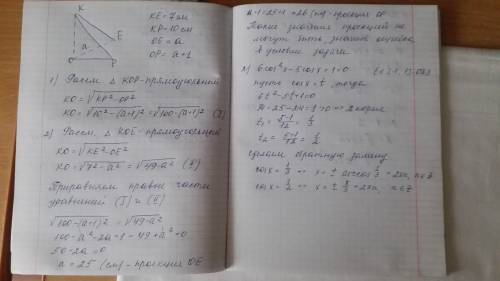 K
E
O
P
a
KE = 7 см
KP = 10 см
OE = a
OP = a+1
1) Рассм. △ KOP-прямоугольный
KO = √KP²-OP²
KO = √10²-(a+1)² = √100-(a+1)² (I)
2) Рассм. △ KOE-прямоугольный
KO = √KE²-OE²
KO = √7²-a² = √49-a² (II)
Приравняем правые части
уравнений (I) и (II)
√100-(a+1)² = √49-a²
100-a²-2a-1-49+a²=0
50-2a=0
a = 25 (см) - проекция OE
a+1=25+1=26 (см)-проекция OP
Такие значения проекций не
могут быть, значит ошибка
в условии задачи
6cos²x-5cosx+1=0
пусть cosx=t, тогда
6t²-5t+1=0
D=25-24=1>0 => 2 корня
t₁ = 5-1/12 = 1/3
t₂ = 5+1/12 = 1/2
сделаем обратную замену
cosx = 1/3 => x = ± arccos 1/3 + 2πn, n∈Z
cosx = 1/2 => x = ± π/3 + 2πn, n∈Z